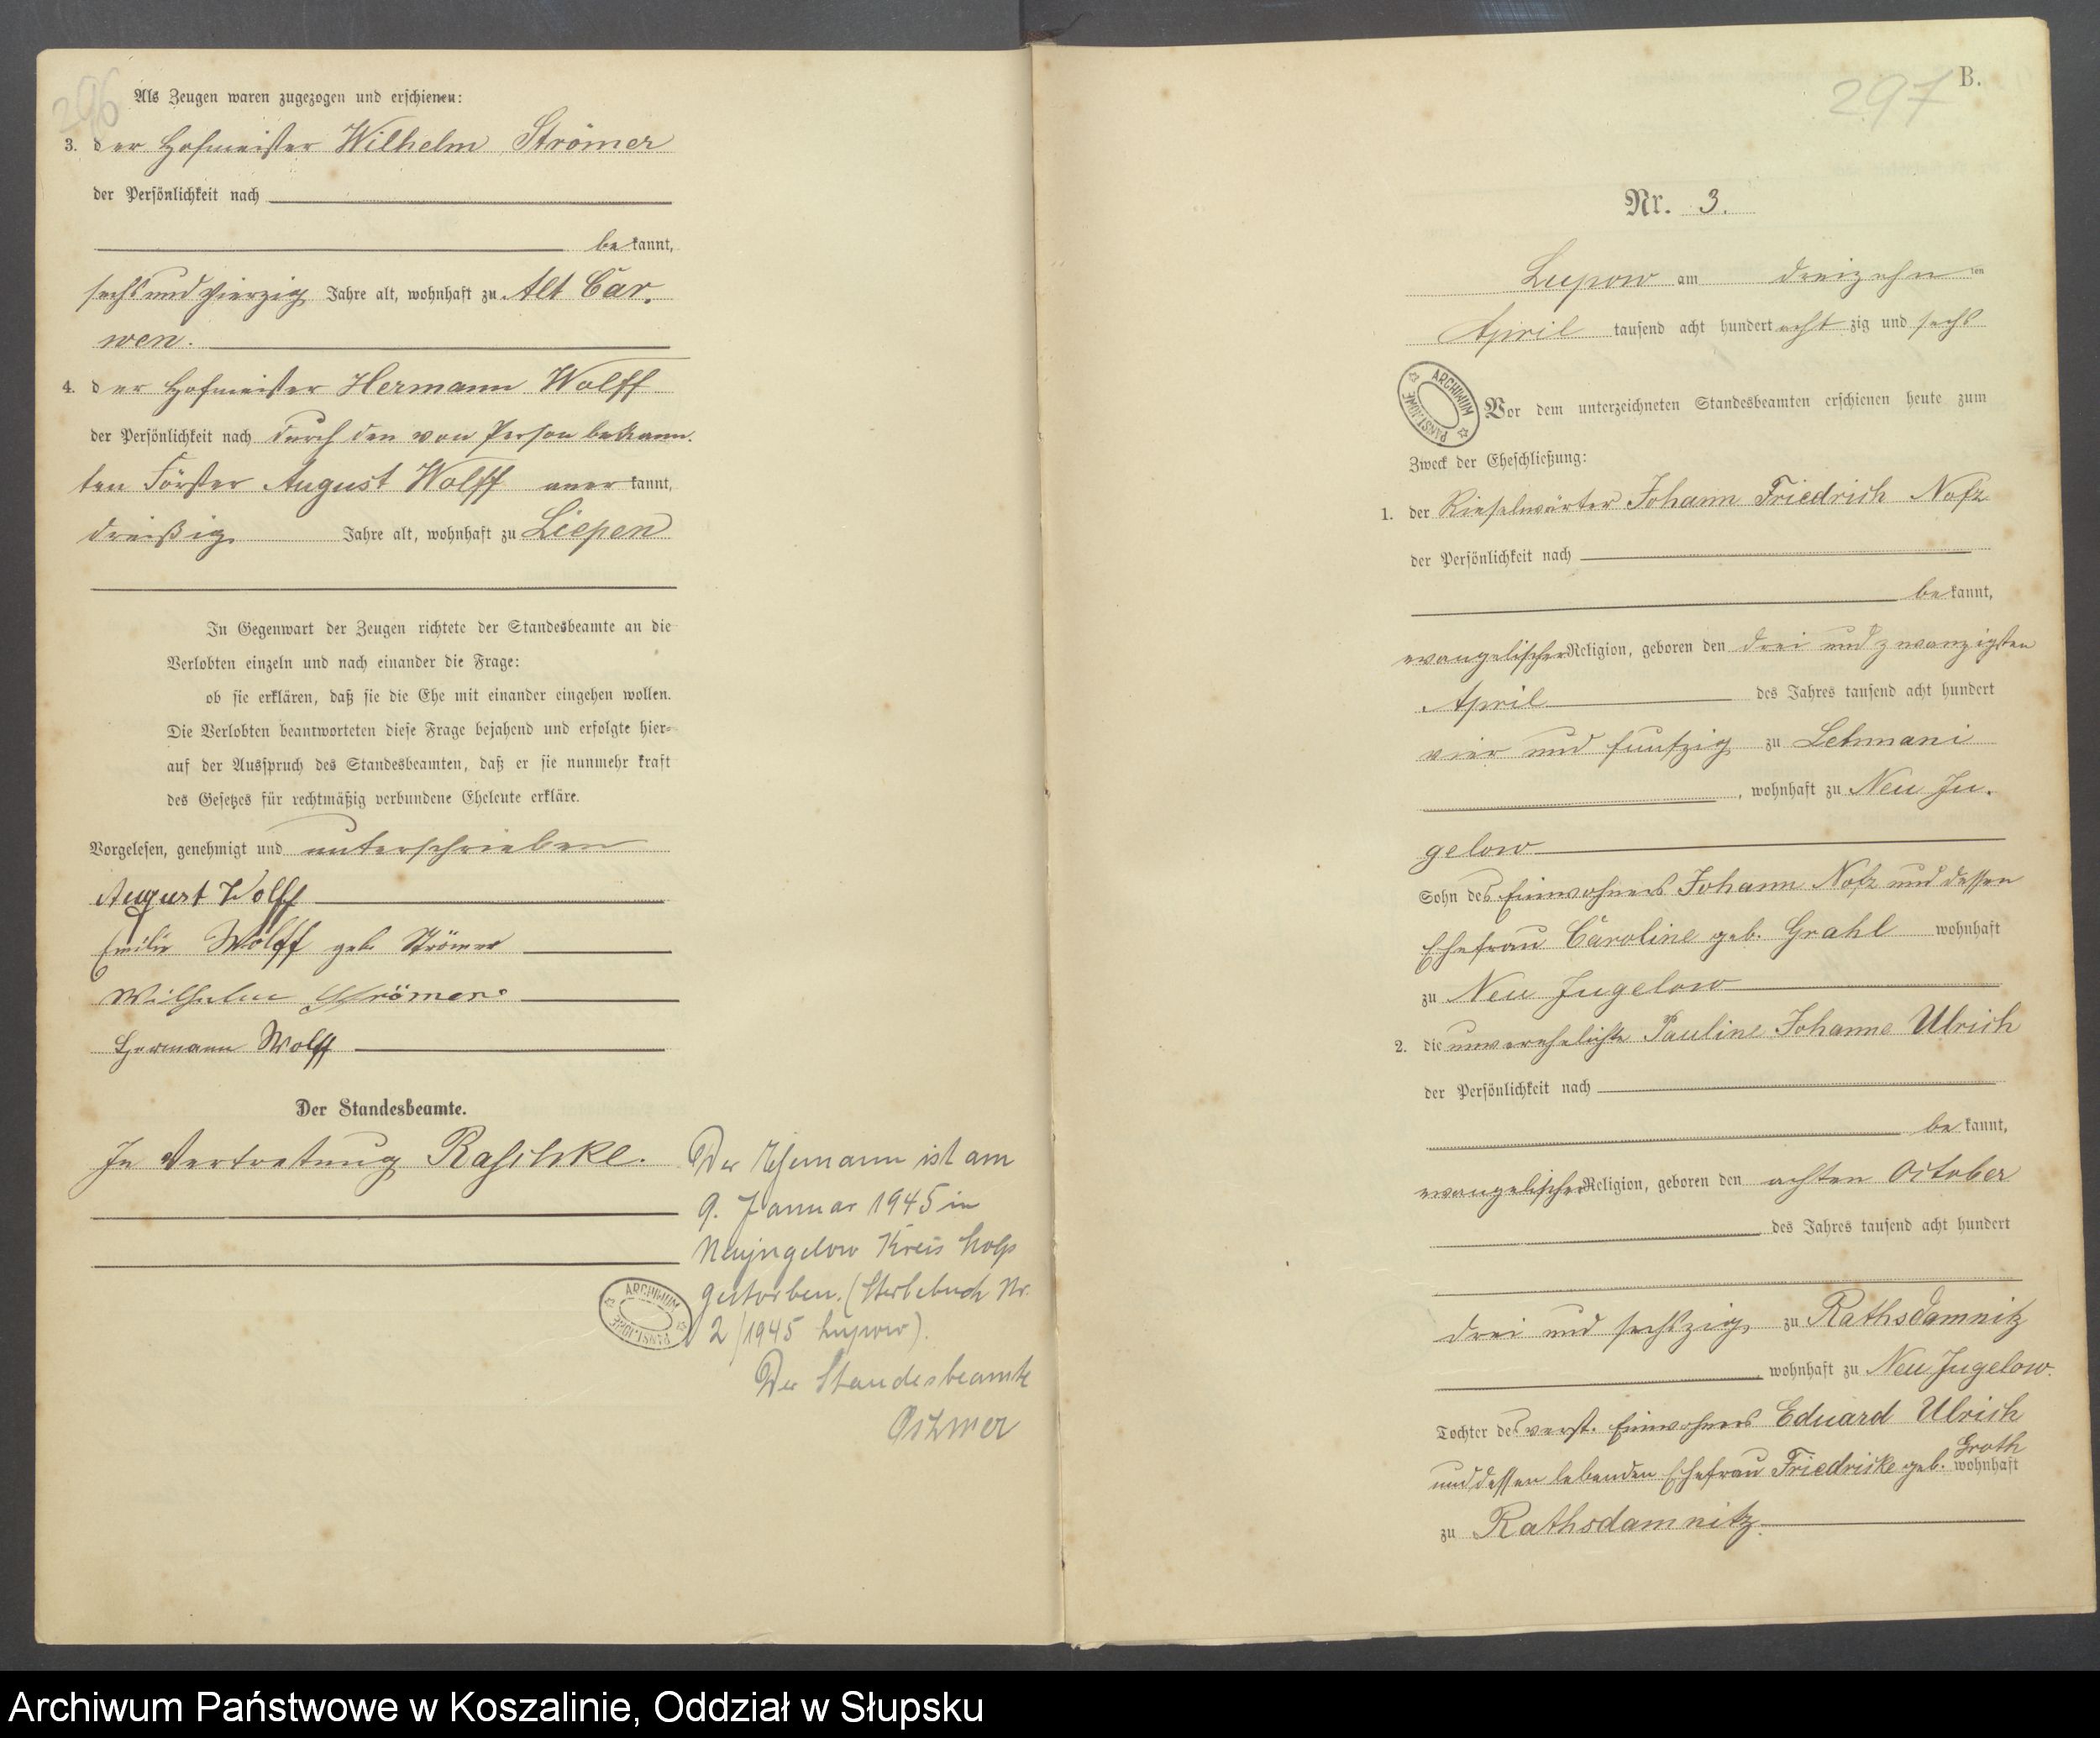 296
Als Zeugen waren zugezogen und erschienen:
3. der Hofmeister Wilhelm Strömer
der Persönlichkeit nach
bekannt,
sechs und vierzig Jahre alt, wohnhaft zu Alt Car-
wen.
4. der Hofmeister Hermann Wolff
der Persönlichkeit nach durch den von Person bekann-
ten Förster August Wolff anerkannt,
dreißig Jahre alt, wohnhaft zu Liepen
In Gegenwart der Zeugen richtete der Standesbeamte an die
Verlobten einzeln und nach einander die Frage:
ob sie erklären, daß sie die Ehe mit einander eingehen wollen.
Die Verlobten beantworteten diese Frage bejahend und erfolgte hier-
auf der Ausspruch des Standesbeamten, daß er sie nunmehr kraft
des Gesetzes für rechtmäßig verbundene Eheleute erkläre.
Vorgelesen, genehmigt und unterschrieben
August Wolff
Emilie Wolff geb. Strömer
Wilhelm Strömer
Hermann Wolff
Der Standesbeamte.
In Vertretung Raschke.
Der Ehemann ist am
9. Januar 1945 in
Neujugelow Kreis Stolp
gestorben. (Sterbebuch Nr.
2/1945 Lupow).
Der Standesbeamte
ARCHIWUM PAŃSTWOWE
297 B.
Nr. 3.
Lupow am dreizehnten
April tausend acht hundert achtzig und sechs
ARCHIWUM PAŃSTWOWE
Vor dem unterzeichneten Standesbeamten erschienen heute zum
Zweck der Eheschließung:
1. der Rieselwärter Johann Friedrich Notz
der Persönlichkeit nach
bekannt,
evangelischer Religion, geboren den drei und zwanzigsten
April des Jahres tausend acht hundert
vier und funfzig zu
, wohnhaft zu Neu Ju-
gelow
Sohn des Einwohners Johann Notz und dessen
Ehefrau Caroline geb. Grahl wohnhaft
zu Neu Jugelow
2. die unverehelichte Pauline Johanne Ulrich
der Persönlichkeit nach
bekannt,
evangelischer Religion, geboren den achten October
des Jahres tausend acht hundert
drei und sechszig zu Rathsdamnitz
, wohnhaft zu Neu Jugelow.
Tochter des verst. Einwohners Eduard Ulrich
und dessen lebenden Ehefrau Friedrike geb. Groth wohnhaft
zu Rathsdamnitz.
Archiwum Państwowe w Koszalinie, Oddział w Słupsku